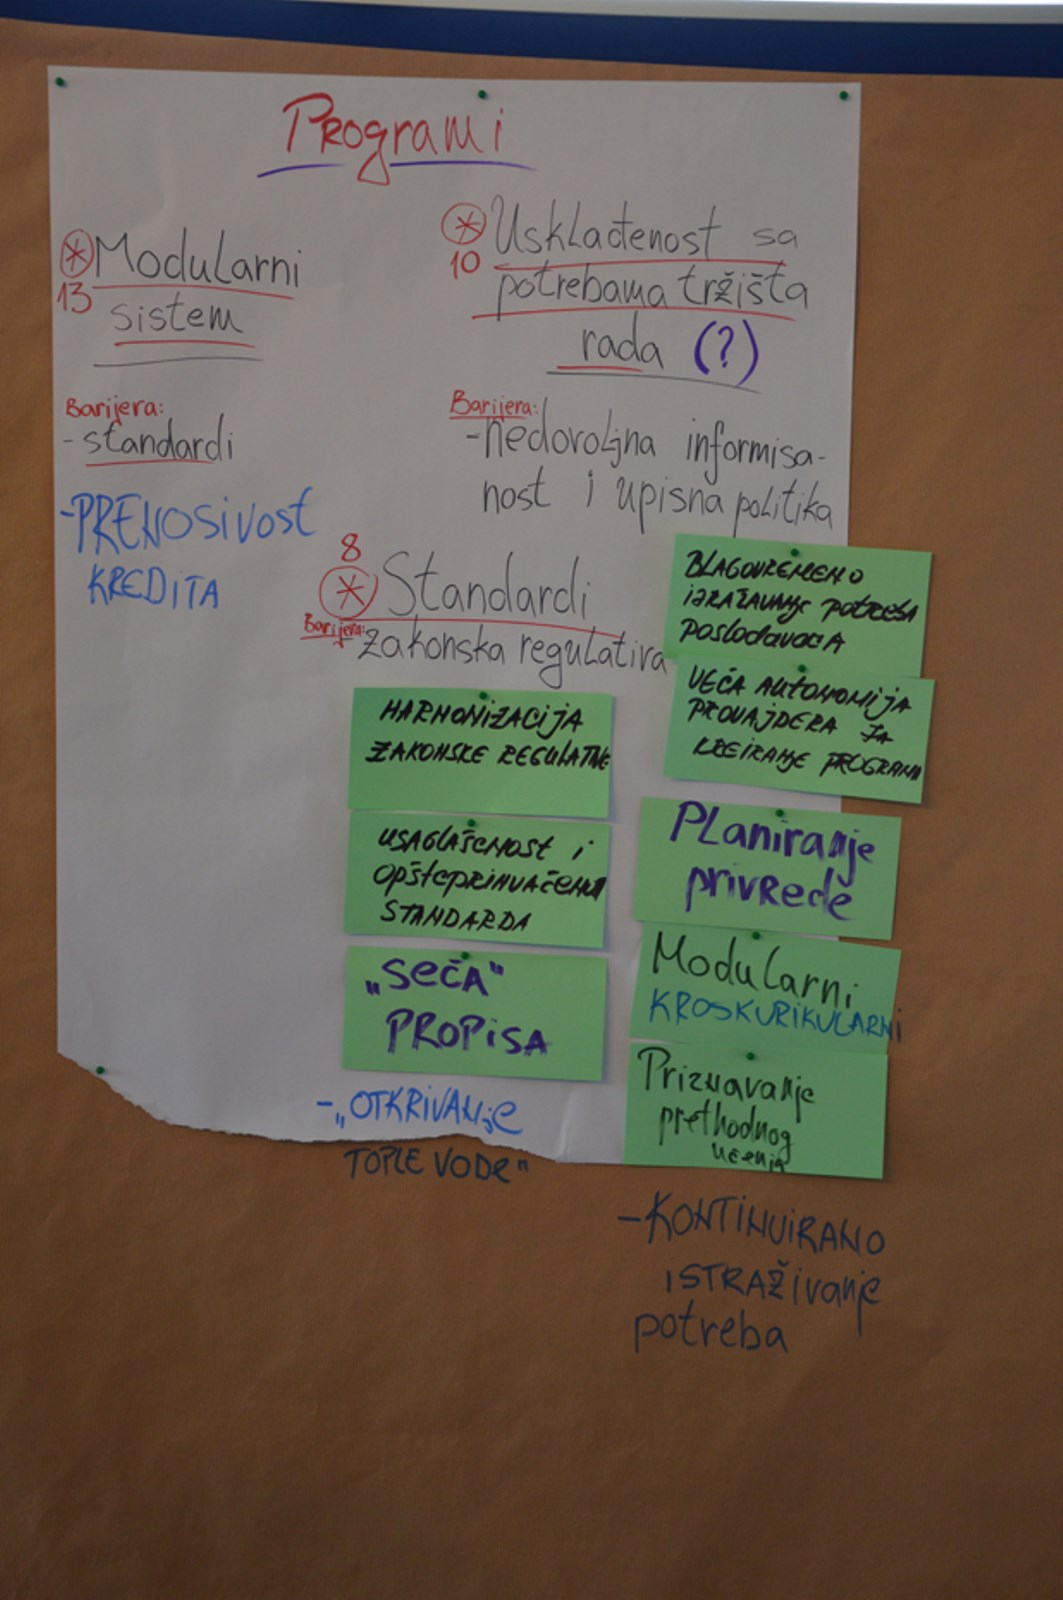 Programi
* Modularni
13 sistem
Barijera:
- standardi
- PRENOSIVOST
KREDITA
* Usklađenost sa
10 potrebama tržišta
rada (?)
Barijera:
- nedovoljna informisa-
nost i upisna politika
8
* Standardi
Barijera: zakonska regulativa
HARMONIZACIJA
ZAKONSKE REGULATIVE
USAGLAŠENOST i
OPŠTEPRIHVAĆENIH
STANDARDA
„SEČA"
PROPISA
- „OTKRIVANJE
TOPLE VODE"
BLAGOVREMENO
IZRAŽAVANJE POTREBA
POSLODAVACA
VEĆA AUTONOMIJA
PROVAJDERA ZA
KREIRANJE PROGRAMA
Planiranje
privrede
Modularni
KROSKURIKULARNI
Priznavanje
prethodnog
učenja
- KONTINUIRANO
ISTRAŽivanje
potreba